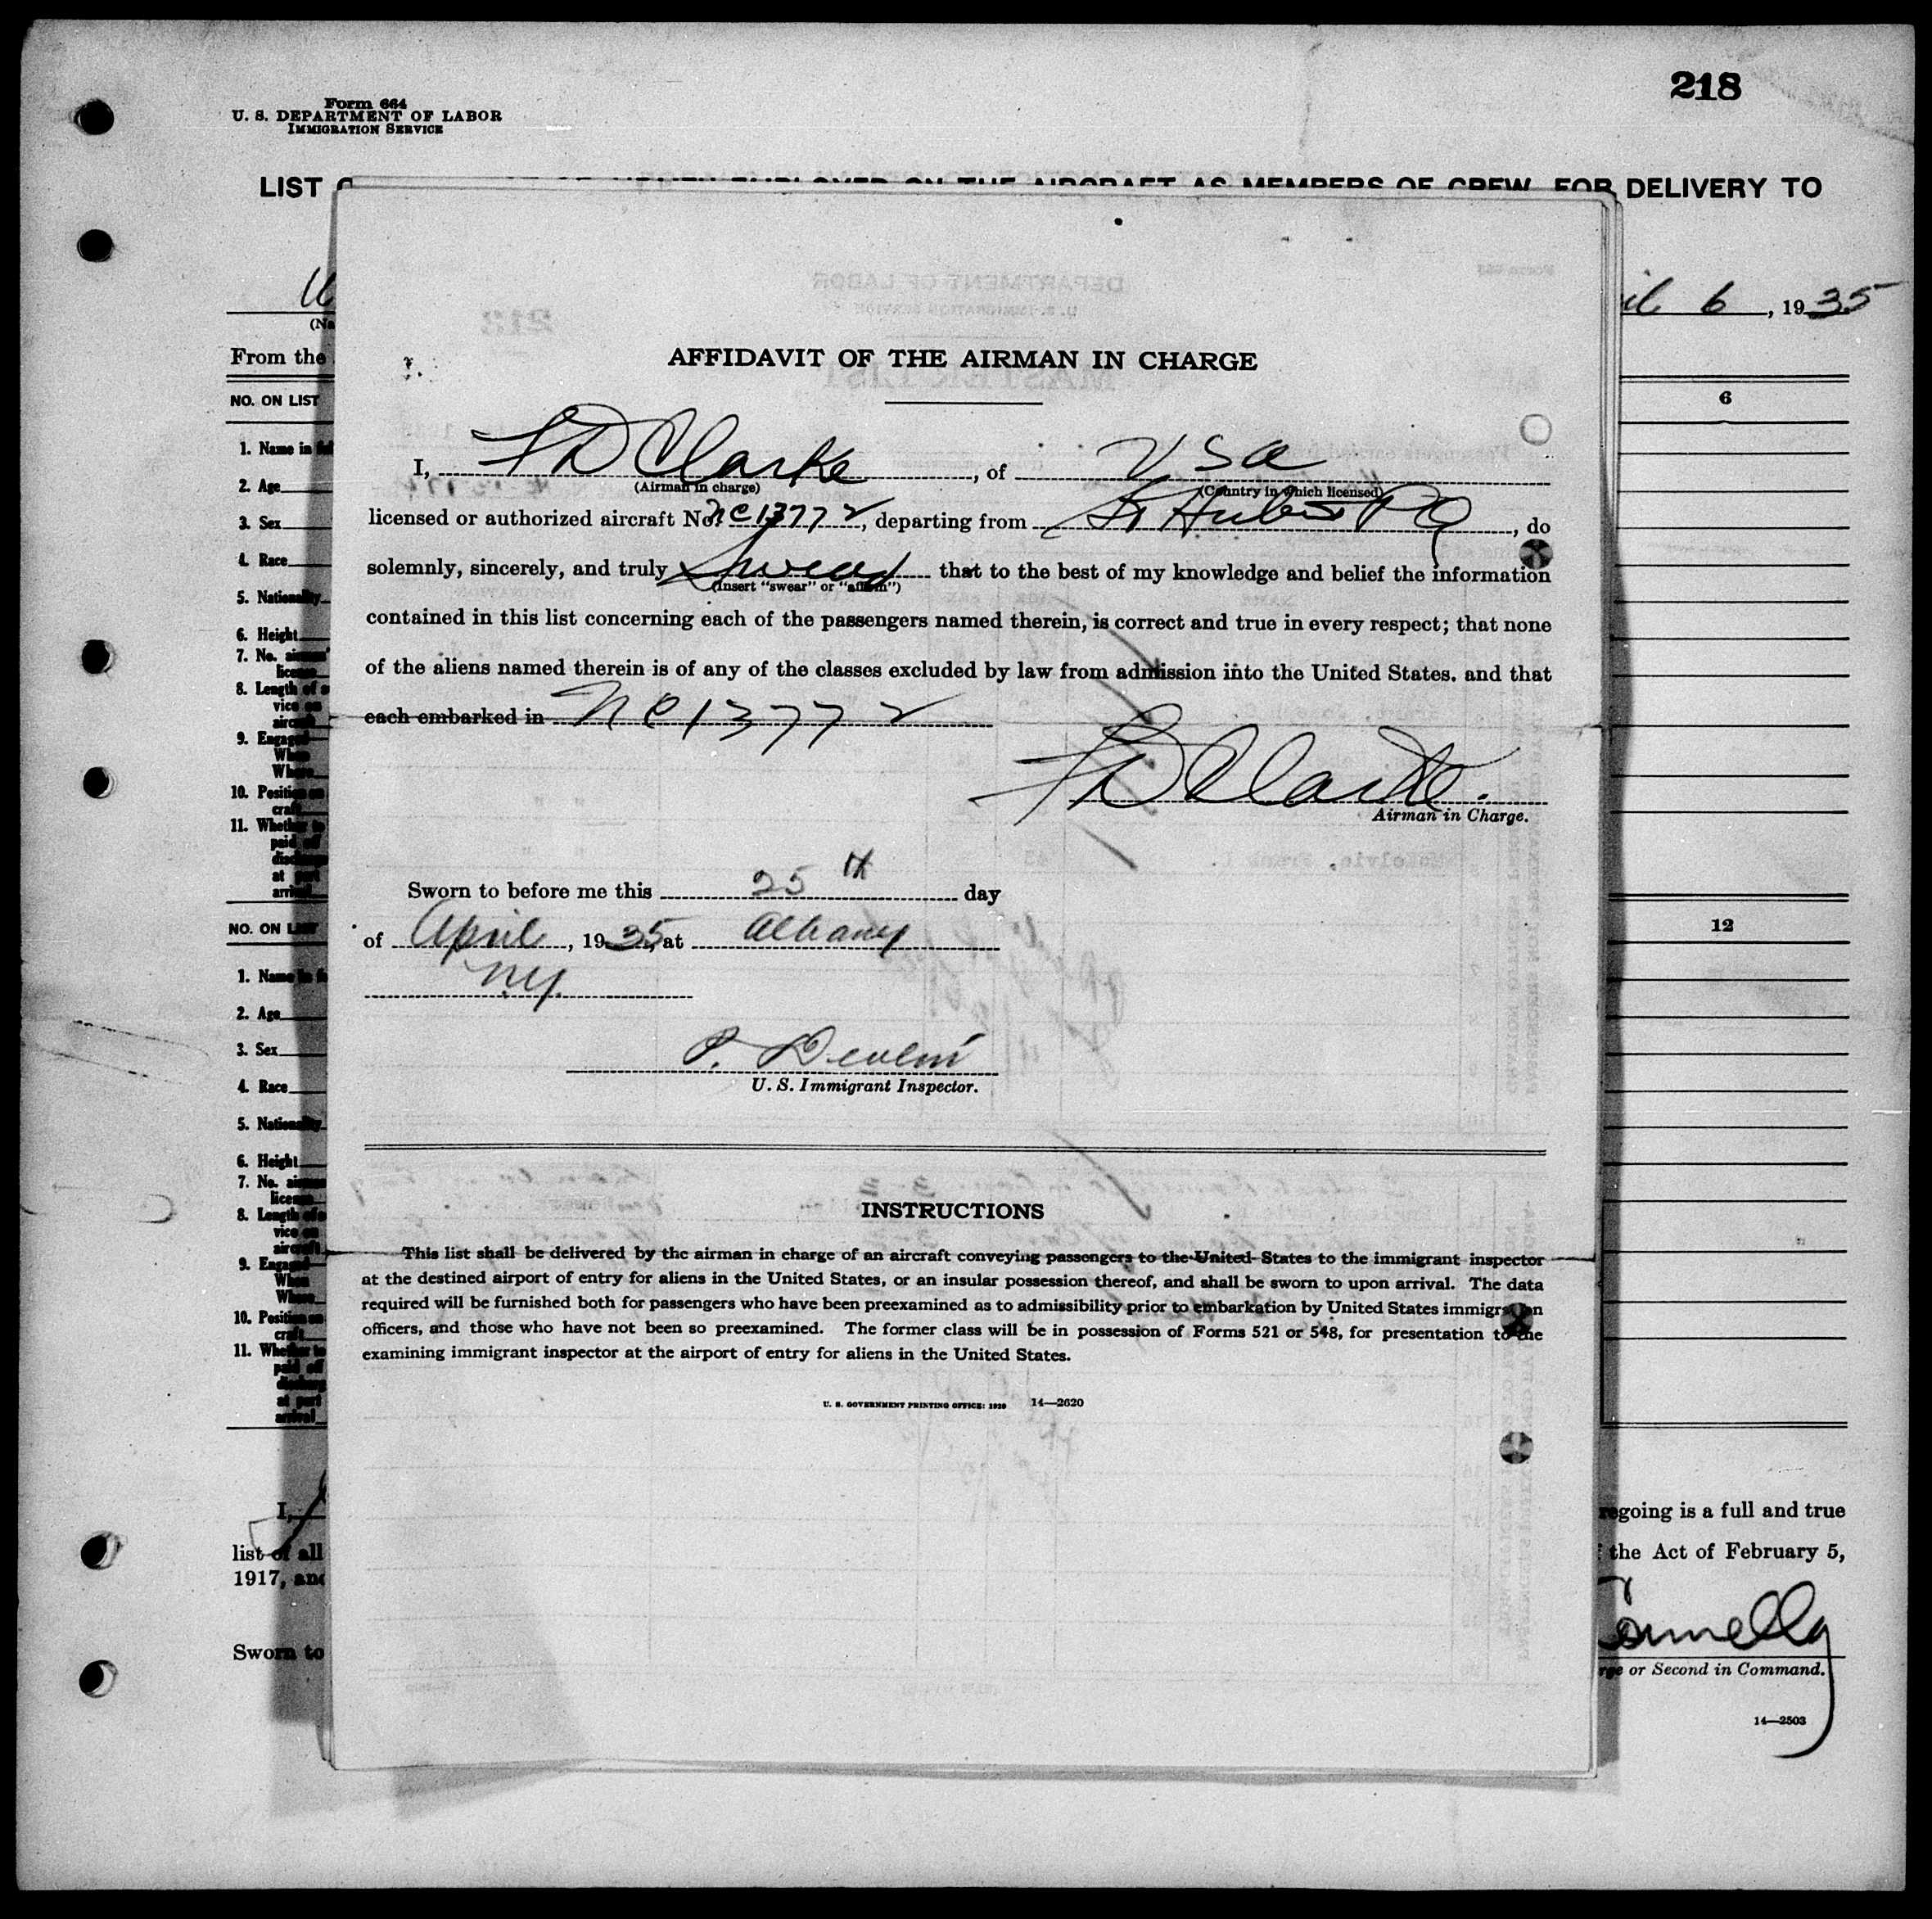 218
Form 664
U. S. DEPARTMENT OF LABOR
IMMIGRATION SERVICE
LIST
AIRCRAFT AS MEMBERS OF CREW, FOR DELIVERY TO
6, 1935
From the
AFFIDAVIT OF THE AIRMAN IN CHARGE
NO. ON LIST
6
I, F D Clarke, of USA
(Airman in charge)
(Country in which licensed)
licensed or authorized aircraft No. NC13772, departing from St Hubert PQ, do
solemnly, sincerely, and truly Swear that to the best of my knowledge and belief the information
(Insert "swear" or "affirm")
contained in this list concerning each of the passengers named therein, is correct and true in every respect; that none
of the aliens named therein is of any of the classes excluded by law from admission into the United States. and that
each embarked in NC13772
F D Clarke.
Airman in Charge.
Sworn to before me this 25th day
of April, 1935, at Albany
N.Y.
P. Devlin
U. S. Immigrant Inspector.
INSTRUCTIONS
This list shall be delivered by the airman in charge of an aircraft conveying passengers to the United States to the immigrant inspector
at the destined airport of entry for aliens in the United States, or an insular possession thereof, and shall be sworn to upon arrival. The data
required will be furnished both for passengers who have been preexamined as to admissibility prior to embarkation by United States immigration
officers, and those who have not been so preexamined. The former class will be in possession of Forms 521 or 548, for presentation to the
examining immigrant inspector at the airport of entry for aliens in the United States.
U. S. GOVERNMENT PRINTING OFFICE: 1929 14—2620
1. Name in
2. Age
3. Sex
4. Race
5. Nationality
6. Height
7. No. airman
license
8. Length of
vice on
aircraft
9. Engaged
When
Where
10. Position on
craft
11. Whether to
paid off
discharge
at port
arrival
NO. ON LIST
12
1. Name in
2. Age
3. Sex
4. Race
5. Nationality
6. Height
7. No. airman
license
8. Length of
vice on
aircraft
9. Engaged
When
Where
10. Position on
craft
11. Whether to
paid off
discharge
at port
arrival
I,
regoing is a full and true
list of all
the Act of February 5,
1917, and
Sworn to
or Second in Command.
14—2503